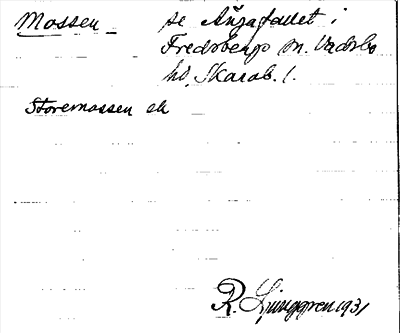 Mossen se Ängafallet i
Fredsbergs sn. Vadsbo
hd, Skarab. l.
Storemossen ek
R. Ljunggren 1931